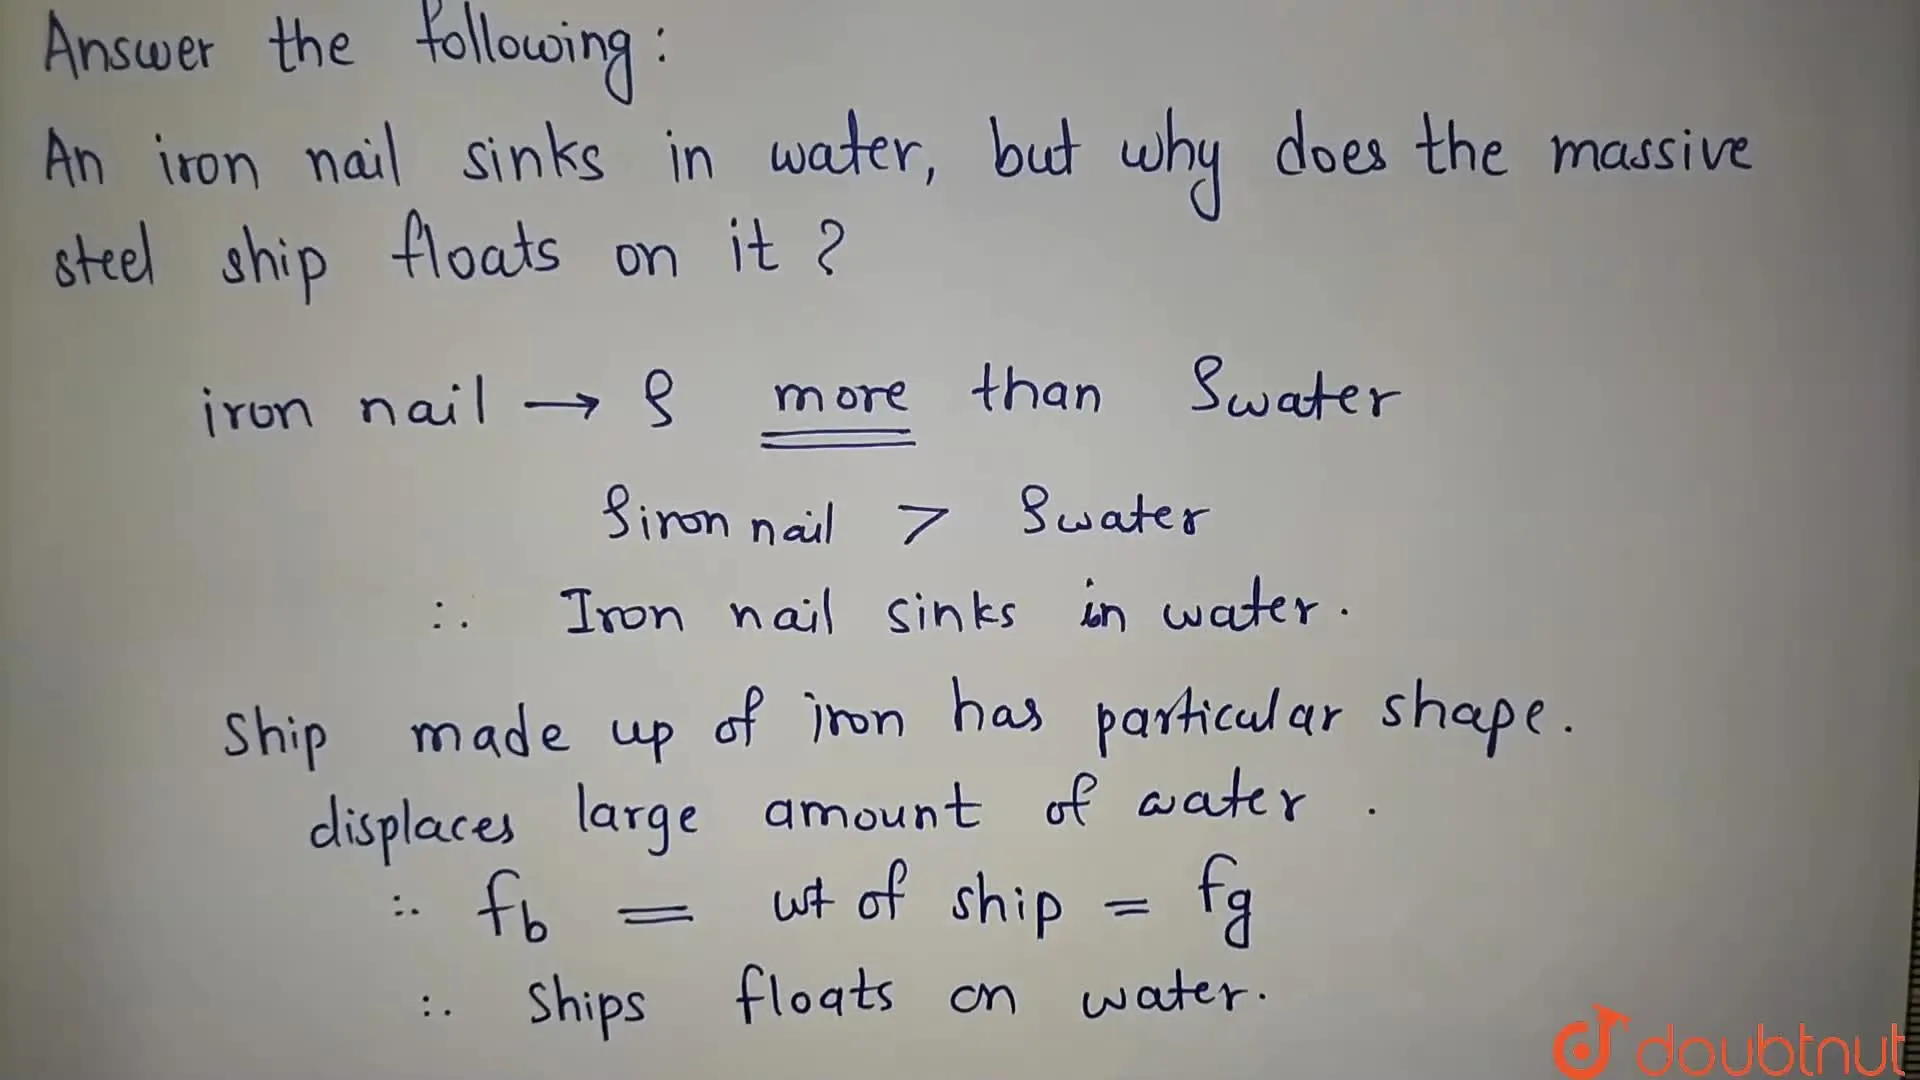 Answer the following:
An iron nail sinks in water, but why does the massive
steel ship floats on it ?
iron nail → ρ more than ρwater
ρiron nail > ρwater
∴ Iron nail sinks in water.
Ship made up of iron has particular shape.
displaces large amount of water .
∴ fb = wt of ship = fg
∴ Ships floats on water.
doubtnut